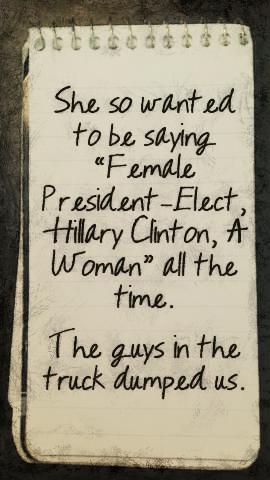 She so wanted
to be saying
“Female
President-Elect,
Hillary Clinton, A
Woman” all the
time.
The guys in the
truck dumped us.